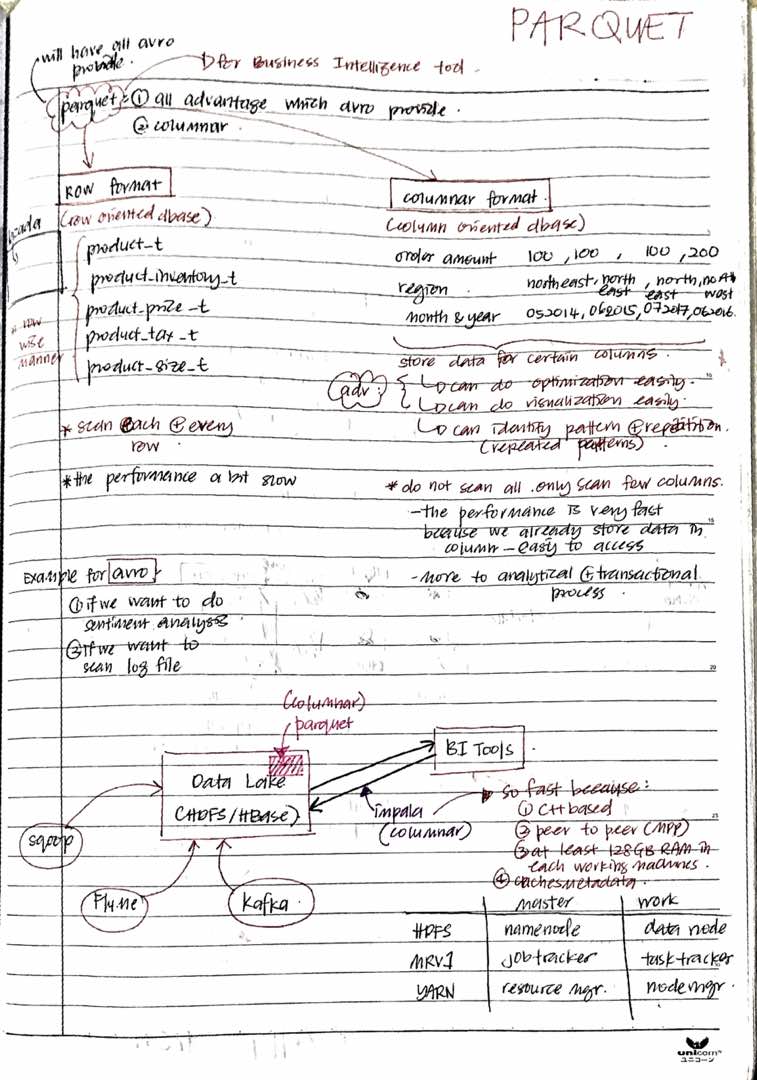 PARQUET
will have all avro
provide.
for Business Intelligence tool.
parquet = ① all advantage which avro provide.
② columnar
ROW format
(row oriented dbase)
product_t
product_inventory_t
product_price_t
product_tax_t
product_size_t
row
wise
manner
* scan each + every
row
* the performance a bit slow
columnar format.
(column oriented dbase)
order amount 100, 100, 100, 200
region northeast, north east, north east, north west
month & year 052014, 062015, 072017, 062016.
store data for certain columns.
adv:
can do optimization easily.
can do visualization easily.
can identify pattern + repetition.
(repeated patterns)
* do not scan all. only scan few columns.
- the performance is very fast
because we already store data in
column - easy to access
- more to analytical + transactional
process.
Example for avro
① if we want to do
sentiment analysis
② if we want to
scan log file
(columnar)
parquet
Data Lake
(HDFS/HBase)
BI Tools
impala
(columnar)
so fast because:
① C++ based
② peer to peer (MPP)
③ at least 128GB RAM in
each working machines.
④ caches metadata.
sqoop
Flume
Kafka
master work
HDFS namenode data node
MRV1 jobtracker tasktracker
YARN resource mgr. nodemgr.
unicorn
ユニコーン